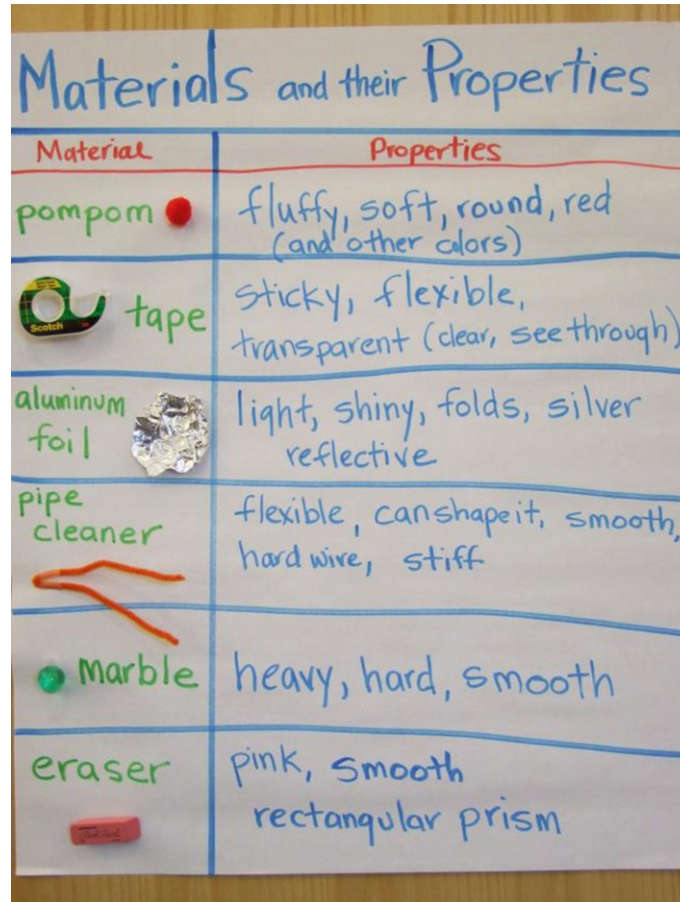 Materials and their Properties
Material Properties
pompom fluffy, soft, round, red
(and other colors)
Scotch
tape sticky, flexible,
transparent (clear, see through)
aluminum
foil light, shiny, folds, silver
reflective
pipe
cleaner flexible, can shape it, smooth,
hard wire, stiff
marble heavy, hard, smooth
eraser pink, smooth
rectangular prism